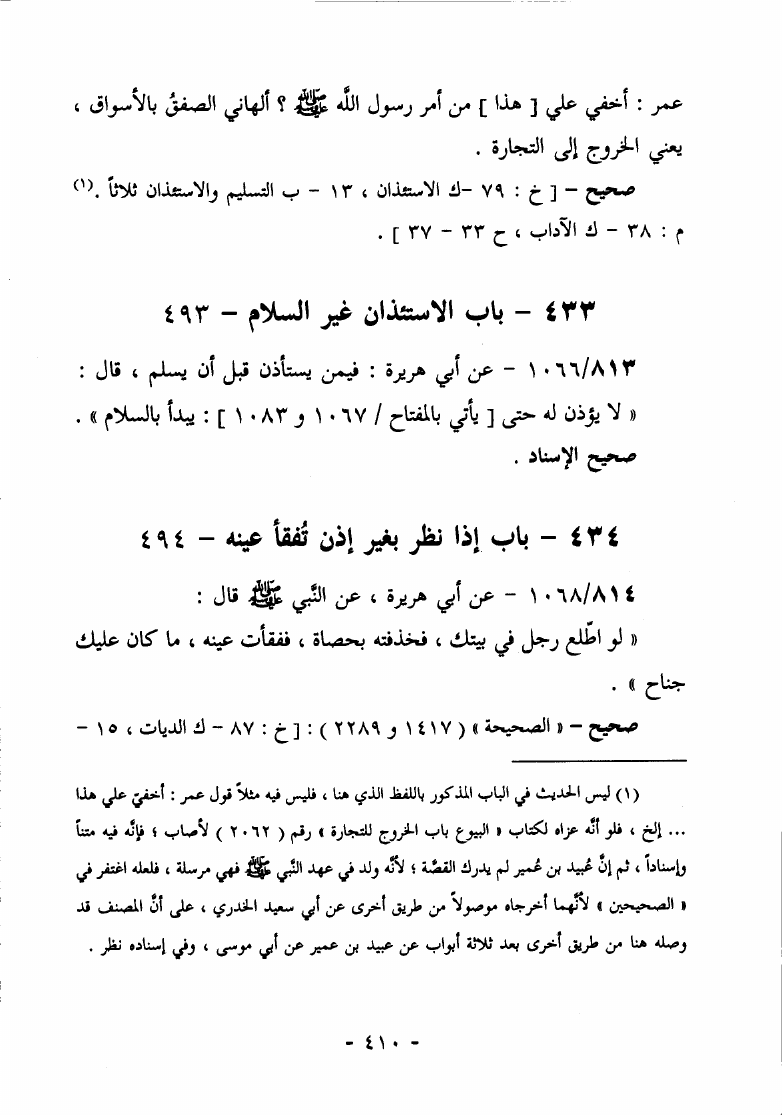 عمر : أخفي علي [ هذا ] من أمر رسول اللَّه ﷺ ؟ ألهاني الصفقُ بالأسواق ،
يعني الخروج إلى التجارة .
صحيح – [ خ : ٧٩ –ك الاستئذان ، ١٣ – ب التسليم والاستئذان ثلاثاً .(١)
م : ٣٨ – ك الآداب ، ح ٣٣ – ٣٧ ] .
٤٣٣ – باب الاستئذان غير السلام – ٤٩٣
١٠٦٦/٨١٣ – عن أبي هريرة : فيمن يستأذن قبل أن يسلم ، قال :
« لا يؤذن له حتى [ يأتي بالمفتاح / ١٠٦٧ و ١٠٨٣ ] : يبدأ بالسلام » .
صحيح الإسناد .
٤٣٤ – باب إذا نظر بغير إذن تُفقأ عينه – ٤٩٤
١٠٦٨/٨١٤ – عن أبي هريرة ، عن النَّبي ﷺ قال :
« لو اطَّلع رجل في بيتك ، فخذفته بحصاة ، ففقأت عينه ، ما كان عليك
جناح » .
صحيح – « الصحيحة » ( ١٤١٧ و ٢٢٨٩ ) : [ خ : ٨٧ – ك الديات ، ١٥ –
(١) ليس الحديث في الباب المذكور باللفظ الذي هنا ، فليس فيه مثلاً قول عمر : أخفيَ علي هذا
... إلخ ، فلو أنَّه عزاه لكتاب « البيوع باب الخروج للتجارة » رقم ( ٢٠٦٢ ) لأصاب ؛ فإنَّه فيه متناً
وإسناداً ، ثم إنَّ عُبيد بن عُمير لم يدرك القصَّة ؛ لأنَّه ولد في عهد النَّبي ﷺ فهي مرسلة ، فلعله اغتفر في
« الصحيحين » لأنَّهما أخرجاه موصولاً من طريق أخرى عن أبي سعيد الخدري ، على أنَّ المصنف قد
وصله هنا من طريق أخرى بعد ثلاثة أبواب عن عبيد بن عمير عن أبي موسى ، وفي إسناده نظر .
- ٤١٠ -